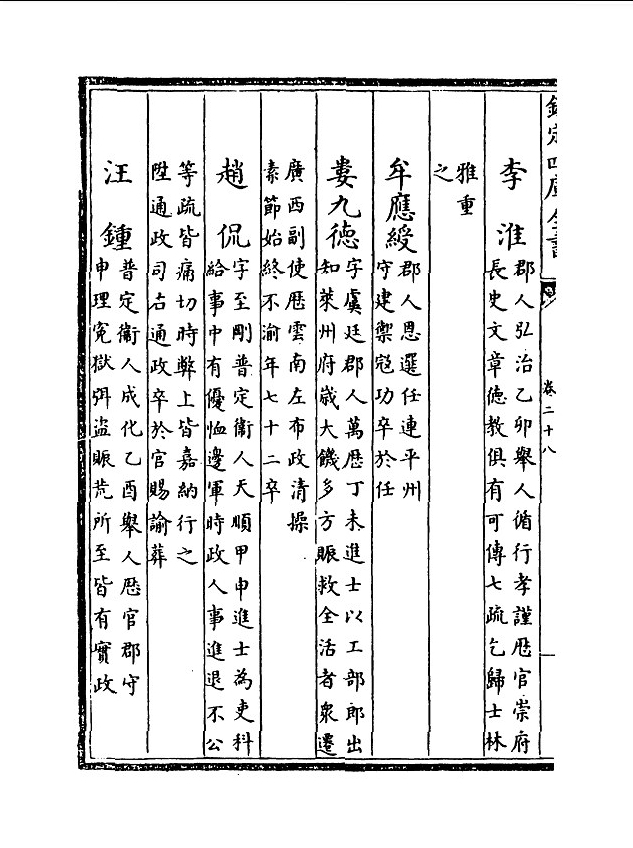 欽定四庫全書 卷二十八
李淮 郡人弘治乙卯舉人循行孝謹歴官崇府
長史文章徳教俱有可傳七疏乞歸士林
雅重
之
牟應綬 郡人恩選任連平州
守建禦宼功卒於任
婁九徳 字虞廷郡人萬歴丁未進士以工部郎出
知萊州府歳大饑多方賑救全活者衆遷
廣西副使歴雲南左布政清操
素節始終不渝年七十二卒
趙侃 字至剛普定衞人天順甲申進士為吏科
給事中有優恤邊軍時政人事進退不公
等疏皆痛切時弊上皆嘉納行之
陞通政司右通政卒於官賜諭葬
汪鍾 普定衞人成化乙酉舉人歴官郡守
申理寃獄弭盗賑荒所至皆有實政